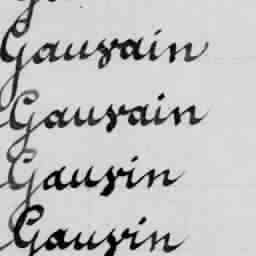 Gauvain
Gauvain
Gauvin
Gauvin